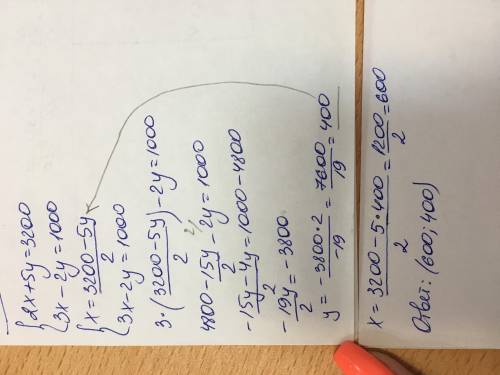 {2x+5y=3200
{3x-2y=1000
{x=\frac{3200-5y}{2}
{3x-2y=1000
3·(\frac{3200-5y}{2})-2y=1000
4800-\frac{15y}{2}-2y=1000
\frac{-15y-4y}{2}=1000-4800
\frac{-19y}{2}=-3800
y=\frac{-3800·2}{-19}=\frac{7600}{19}=400
x=\frac{3200-5·400}{2}=\frac{1200}{2}=600
Ответ: (600; 400)